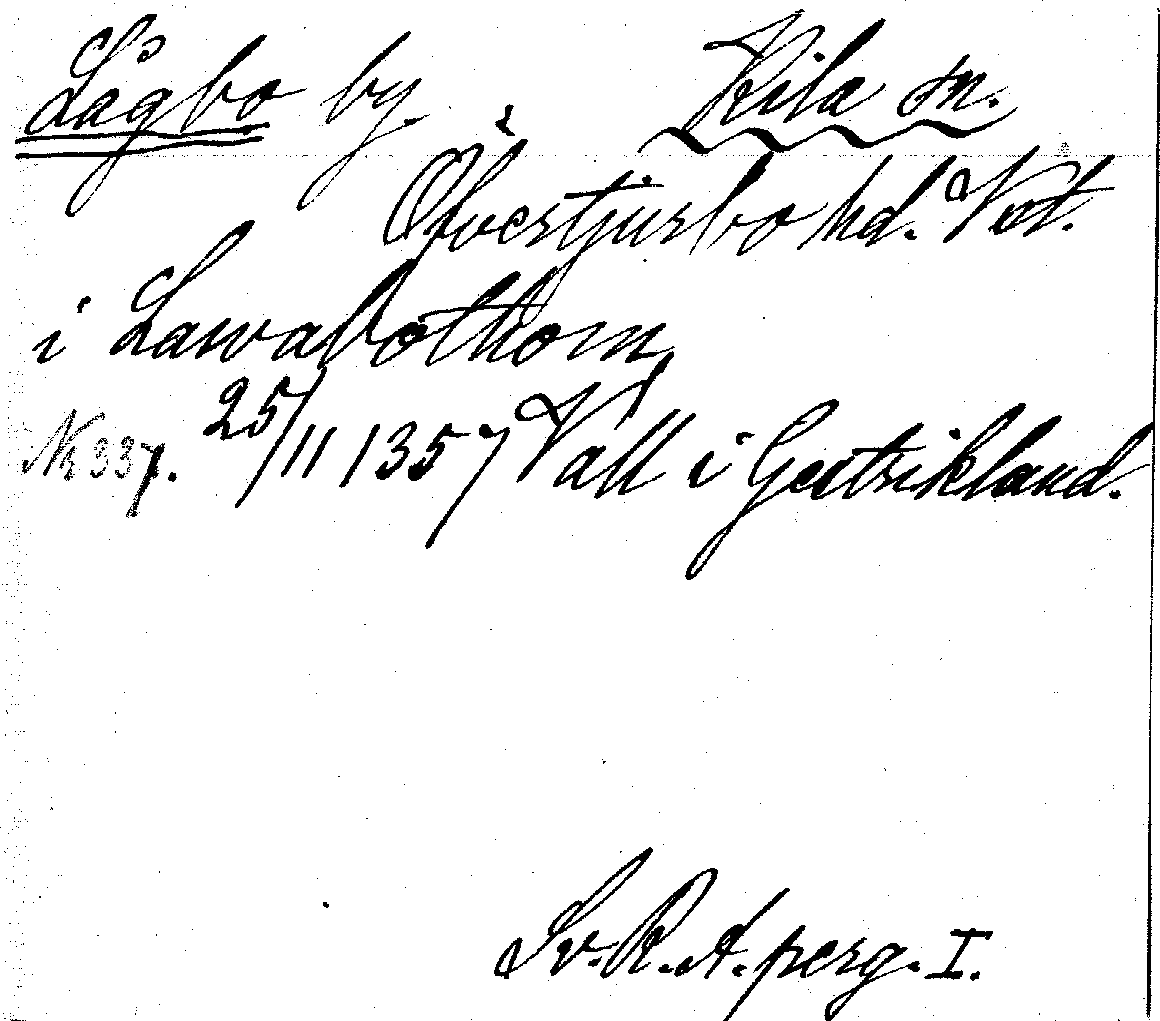 Lågbo by. Kila sn.
Öfvertjurbo hd. Vstm.
i Lawabothom
Nr 337. 25/11 1357 Vall i Gestrikland.
Sv. R. A. perg. I.